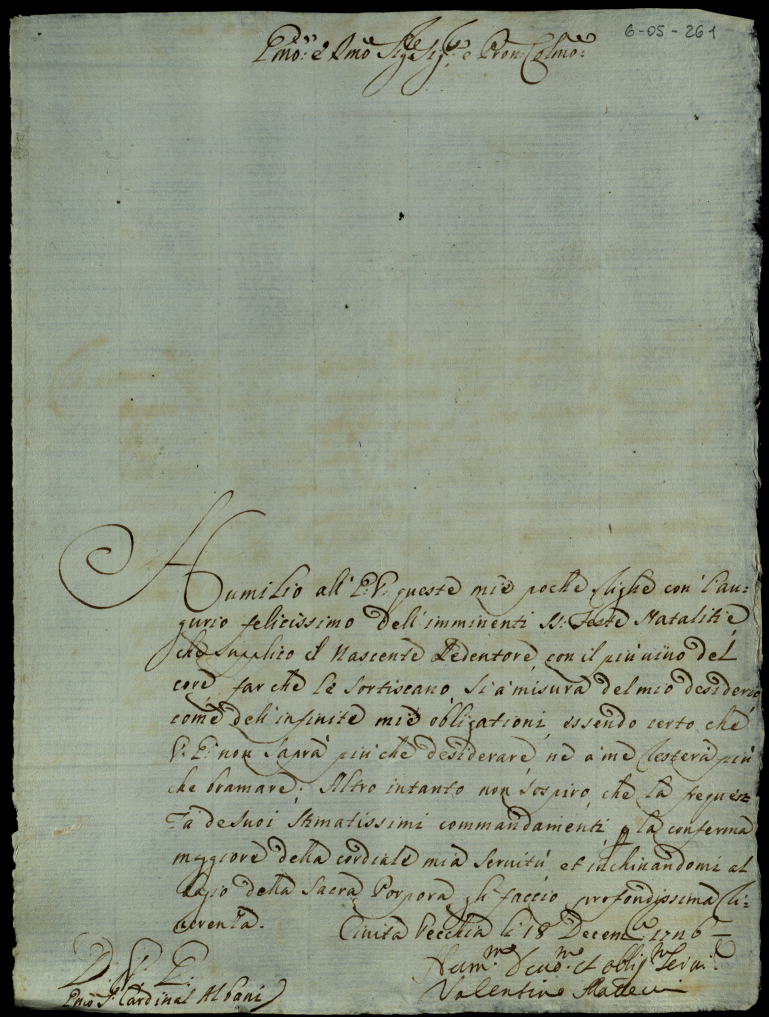 6-05-261
Emo: e Rmo Sig.re Sig.r e Pron Colmo:
Humilio all' E: V: queste mie poche righe con l'au-
gurio felicissimo dell'imminenti SS: Feste Natalitie
che supplico il Nascente Redentore, con il piu vivo del
core, far che le sortiscano, si a misura del mio desiderio
come dell'infinite mie obligationi, essendo certo che
V: E: non saprà piu che desiderare, ne a me resterà piu
che bramare: Altro intanto non sospiro, che la frequen-
za de suoi stimatissimi commandamenti p la conferma
maggiore della cordiale mia servitù, et inchinandomi al
bagio della Sacra Porpora, gli faccio profondissima ri-
verenza. Civita Vecchia li 18 Decem
D: V: E:
Hum.mo Devo.mo et oblig.mo Serv:
Emo S: Cardinal Albani
Valentino